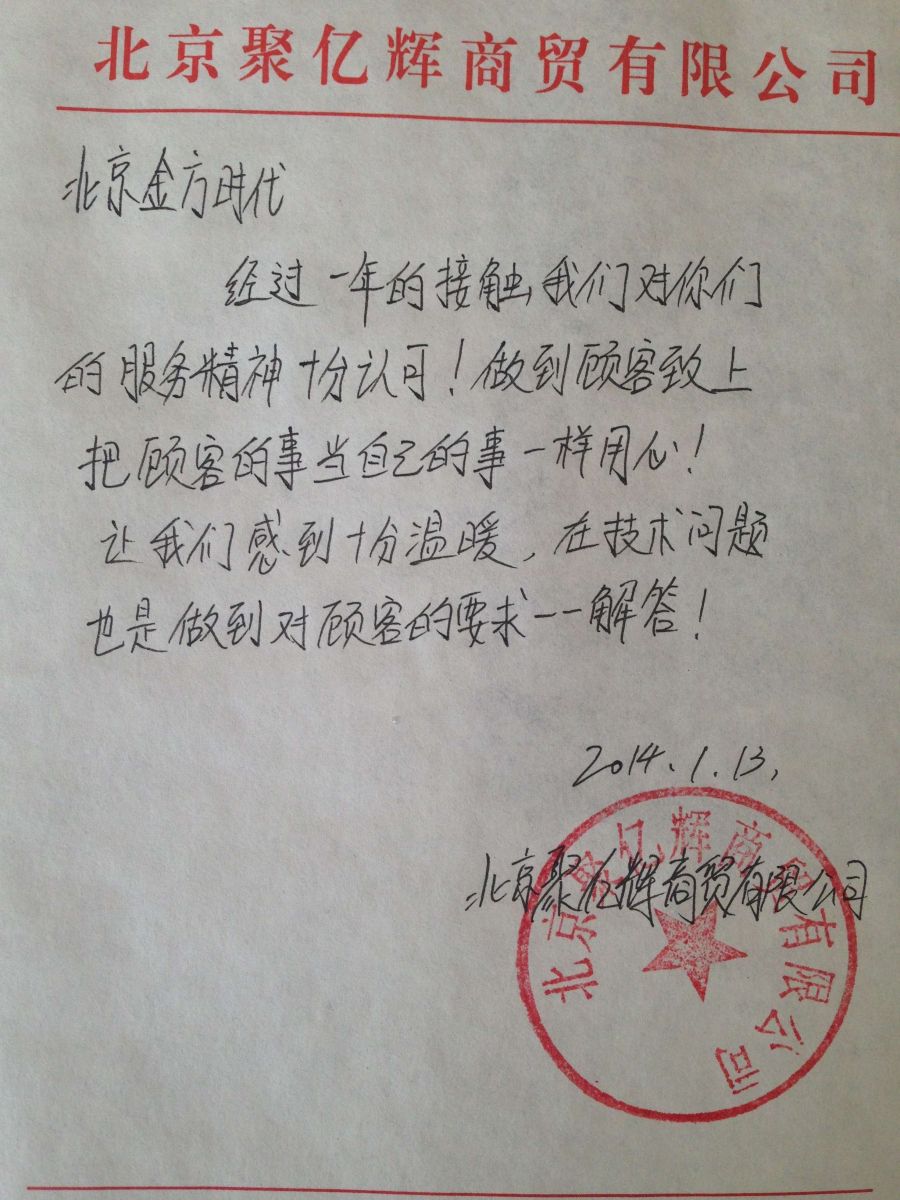 北京聚亿辉商贸有限公司
北京金方时代
经过一年的接触,我们对你们
的服务精神十分认可！做到顾客致上
把顾客的事当自己的事一样用心！
让我们感到十分温暖，在技术问题
也是做到对顾客的要求一一解答！
2014.1.13.
北京聚亿辉商贸有限公司
北京聚亿辉商贸有限公司